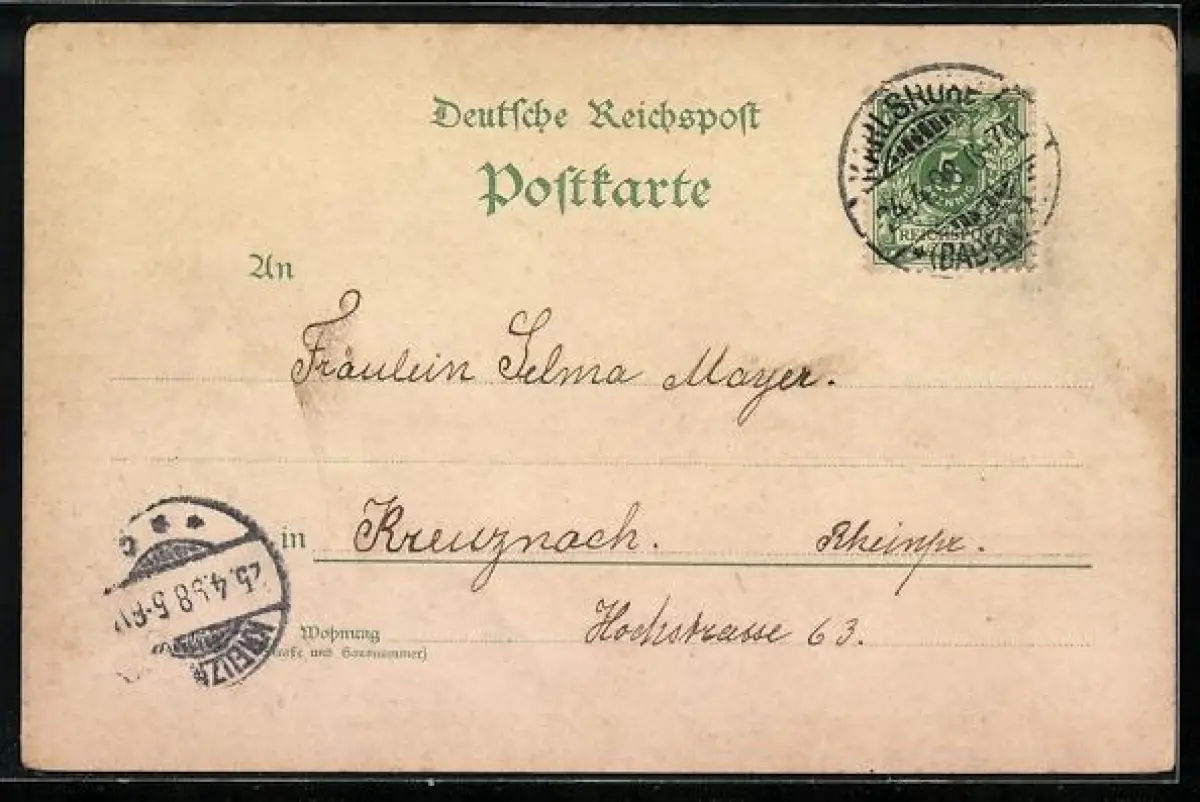 Deutsche Reichspost
Postkarte
KARLSRUHE
24.4.98
5
REICHSPOST
*(BADEN)
An
Fräulein Selma Mayer.
in Kreuznach. Rheinpr.
25.4.98 5-6N
KREUZN
Wohnung Hochstrasse 63.
(Straße und Hausnummer)